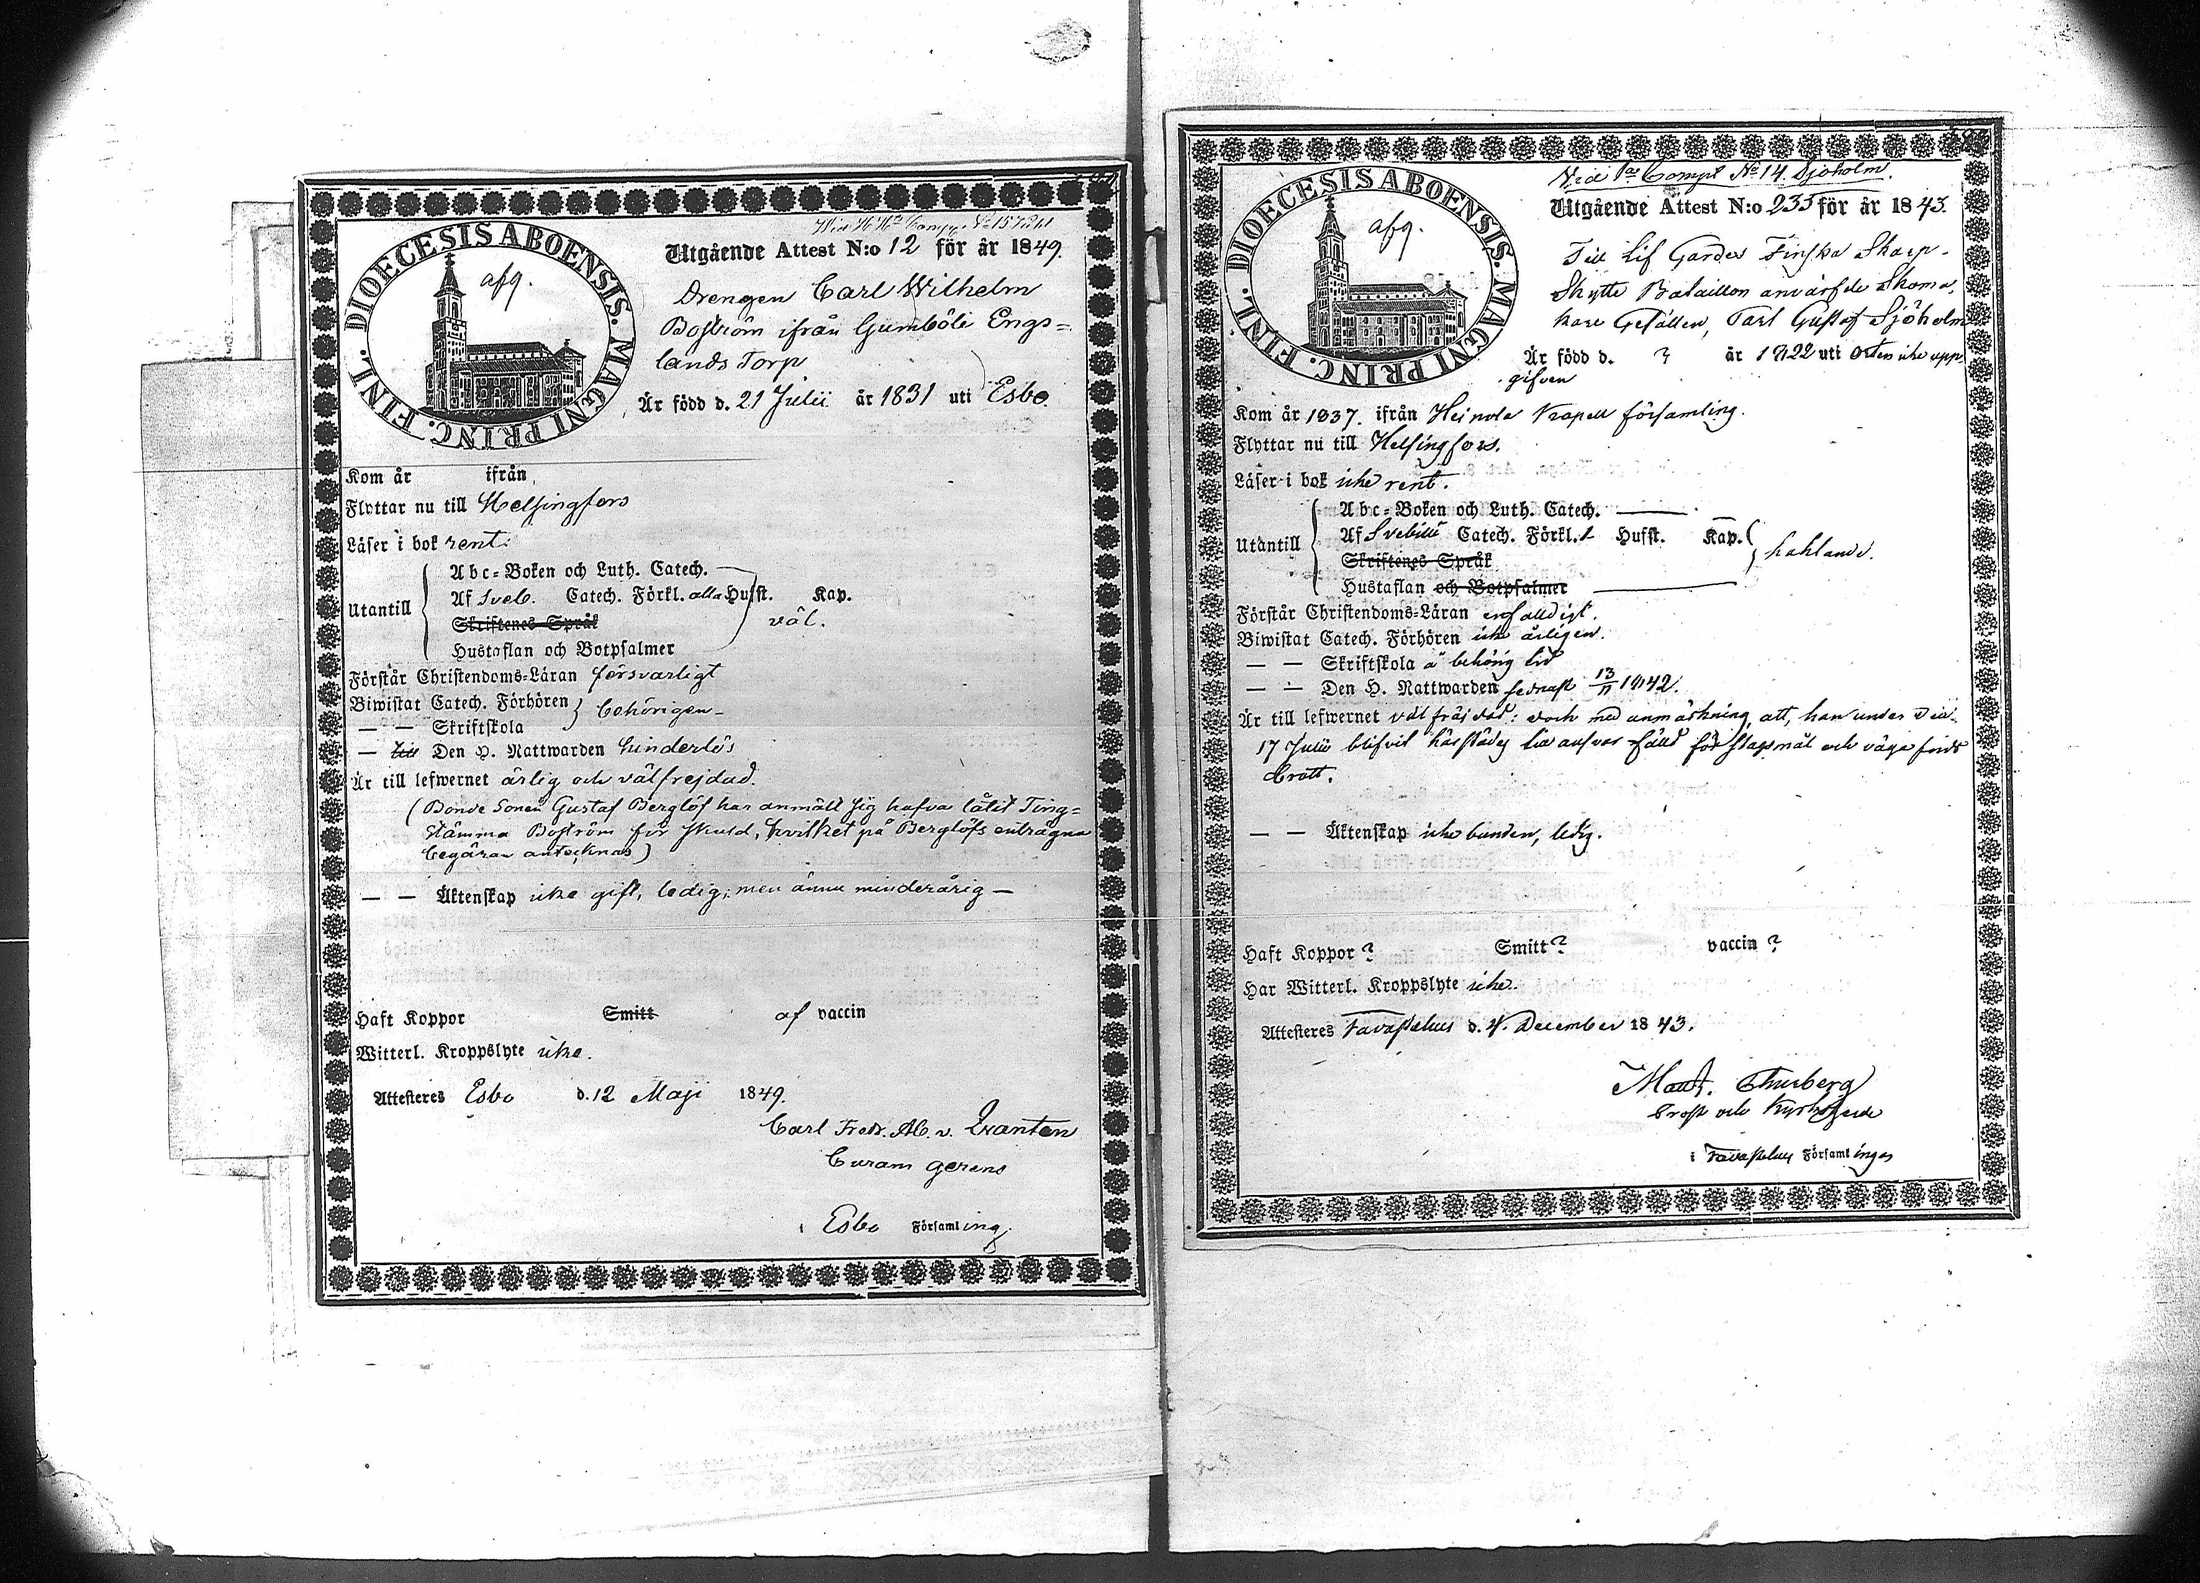 DIOECESIS ABOENSIS. MAGNI PRINC. FINL.
afg.
Utgående Attest N:o 12 för år 1849.
Drengen Carl Wilhelm
Boström ifrån Gumböle Engs=
lands Torp
Är född d. 21 Julii år 1831 uti Esbo
Kom år ifrån
Flyttar nu till Helsingfors
Läser i bok rent.
Utantill
Abc=Boken och Luth. Catech.
Af Sveb. Catech. Förkl. alla Husst. Kap.
Skriftenes Språk
Hustaflan och Botpsalmer
väl.
Förstår Christendoms=Läran försvarligt
Biwistat Catech. Förhören
— — Skriftskola
behörigen —
— till Den H. Nattwarden hinderlös
Är till lefwernet ärlig och välfrejdad.
(Bonde Sonen Gustaf Berglöf har anmält sig hafva låtit Ting=
stämma Boström för skuld, hvilket på Berglöfs enträgna
begäran antecknas)
— — Äktenskap icke gift, ledig; men ännu minderårig —
Haft Koppor Smitt af vaccin
Witterl. Kroppslyte icke.
Attesteres Esbo d. 12 Maji 1849.
Carl Fredr. Alb. v. Qvanten
Curam gerens
i Esbo Församling
Vid Comp. No 14. Sjöholm.
DIOECESIS ABOENSIS. MAGNI PRINC. FINL.
afg.
Utgående Attest N:o 233 för år 1843.
Till Lif Gardes Finska Skarp-
Skytte Bataillon anvärfde Skoma,
kare Gesällen, Carl Gustaf Sjöholm
Är född d. ? år 1822 uti Orten icke upp
gifven
Kom år 1837. ifrån Heinola Kapell församling.
Flyttar nu till Helsingfors.
Läser i bok icke rent.
Utantill
Abc=Boken och Luth. Catech. —
Af Svebilii Catech. Förkl. 1 Husst. Kap.
Skriftenes Språk
Hustaflan och Botpsalmer —
hahlande.
Förstår Christendoms=Läran enfaldigt.
Biwistat Catech. Förhören icke årligen.
— — Skriftskola å behörig tid
— — Den H. Nattwarden sednast 13/11 1842.
Är till lefwernet väl fräjdad: doch med anmärkning, att, han under den
17 Julii blifvit härstädes till ansvar fälld för slagsmål och våga frids
brott.
— — Äktenskap icke bunden, ledig.
Haft Koppor ? Smitt ? vaccin ?
Har Witterl. Kroppslyte icke.
Attesteres Tavastehus d. 4. December 1843.
Thurberg
Prost och Kyrkoherde
i Tavastehus Församlingar